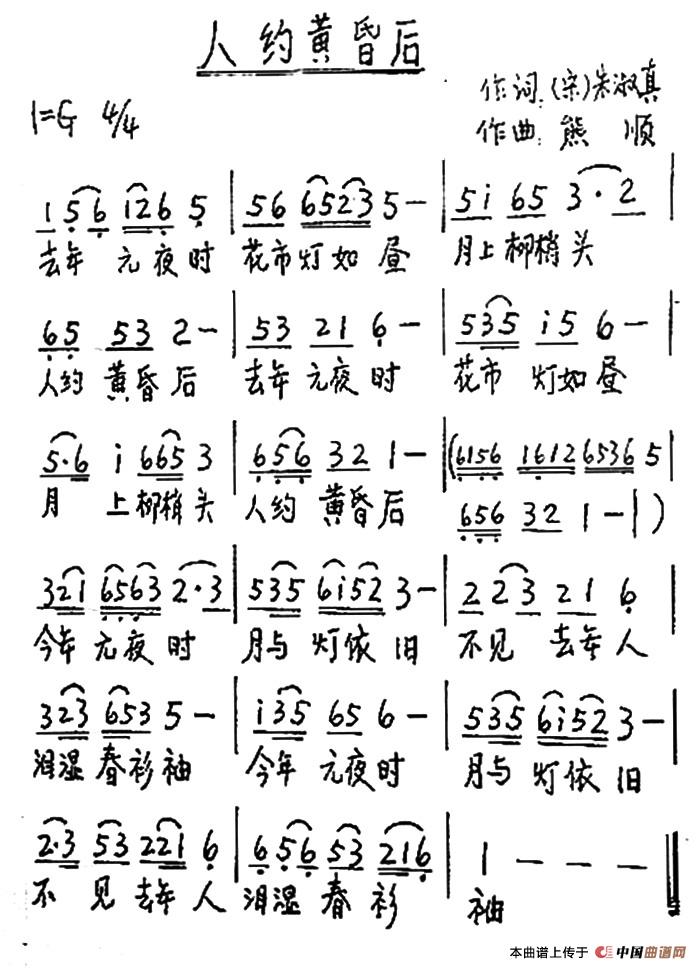 人约黄昏后
作词:(宋)朱淑真
1=G 4/4
作曲:熊 顺
1 56 126 5 | 56 6523 5 - | 5i 65 3·2 |
去年 元夜时 花市灯如昼 月上柳梢头
65 53 2 - | 53 21 6 - | 535 i5 6 - |
人约 黄昏后 去年 元夜时 花市 灯如昼
5·6 i 665 3 | 656 32 1 - | (6156 1612 6536 5 |
月 上柳梢头 人约 黄昏后
656 32 1 - | )
321 6563 2·3 | 535 6i52 3 - | 2 23 21 6 |
今年 元夜时 月与 灯依旧 不见 去年人
323 653 5 - | i35 65 6 - | 535 6i52 3 - |
泪湿 春衫袖 今年 元夜时 月与 灯依旧
2·3 53 221 6 | 6 56 53 216 | 1 - - - ‖
不 见 去年 人 泪湿 春 衫 袖
本曲谱上传于 中国曲谱网